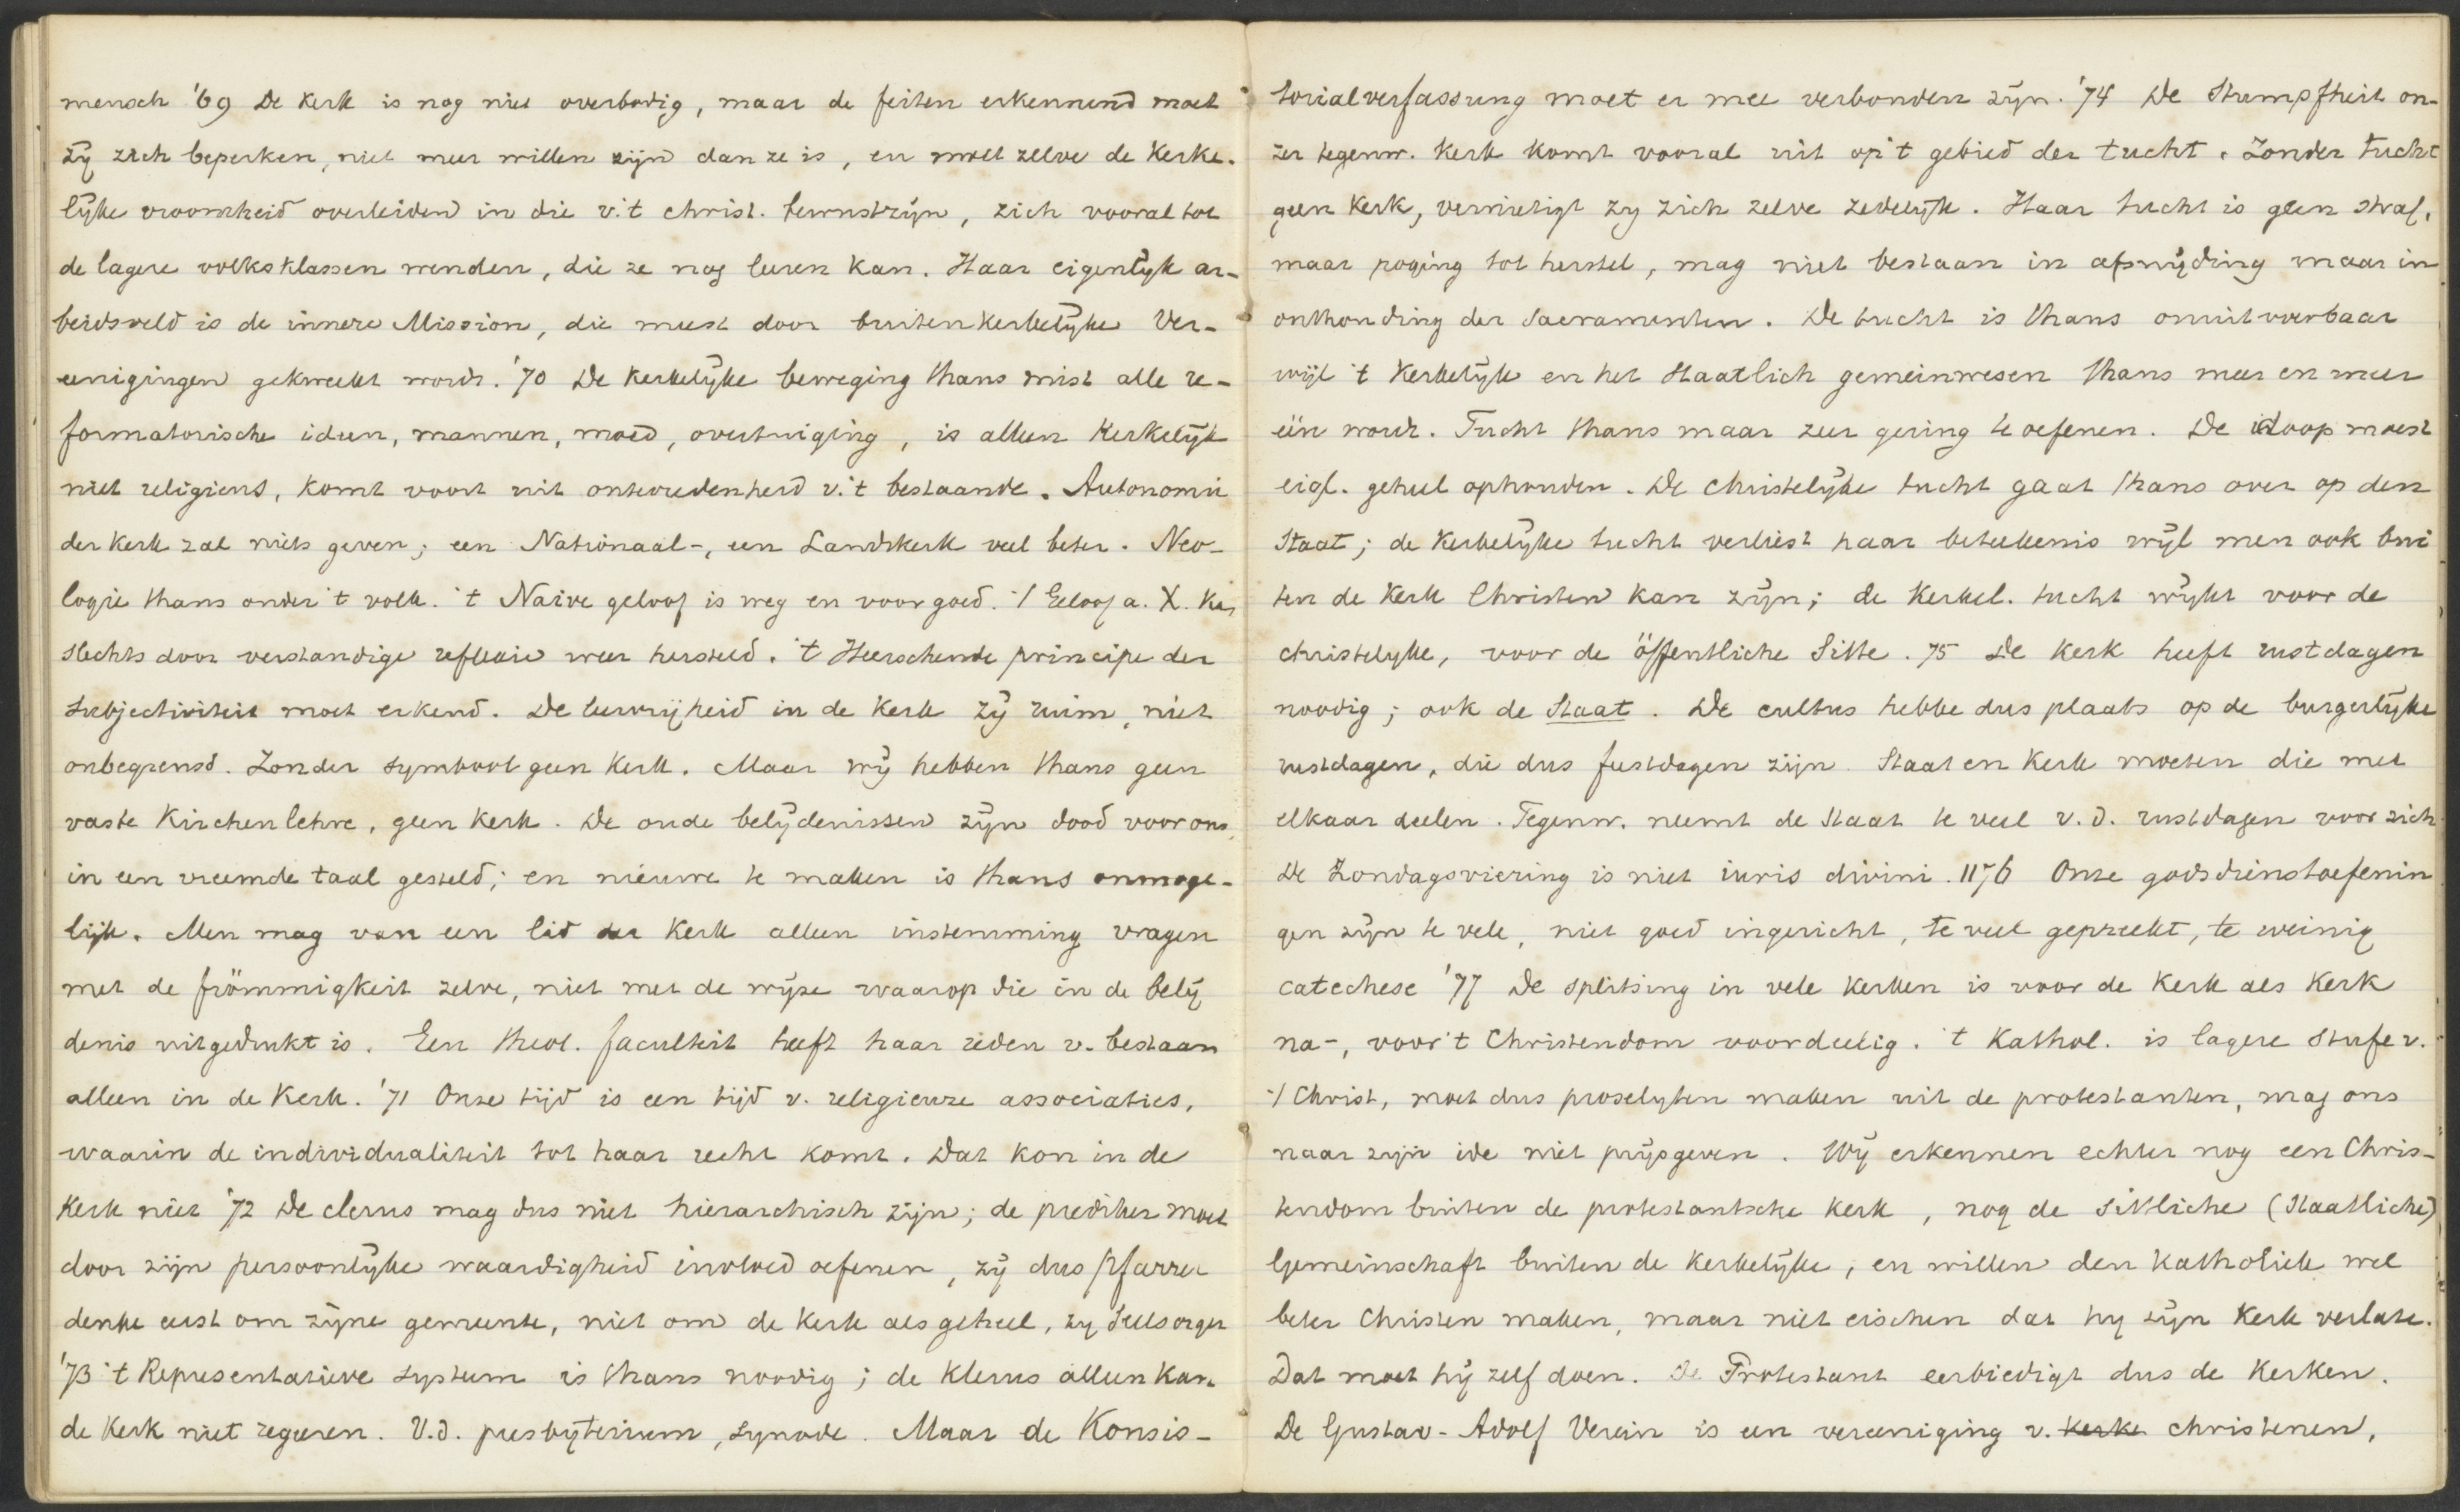 mensch '69 De Kerk is nog niet overbodig, maar de feiten erkennend moet
zij zich beperken, niet meer willen zijn dan ze is, en moet zelve de Kerke-
lijke vroomheid overleiden in die v.'t christ. bewustzijn, zich vooral tot
de lagere volksklassen wenden, die ze nog leeren kan. Haar eigenlijk ar-
beidsveld is de innere Mission, die meest door buitenkerkelijke Ver-
eenigingen gekweekt wordt. '70 De Kerkelijke beweging thans mist alle re-
formatorische ideen, mannen, moed, overtuiging, is alleen Kerkelijk
niet religieus, komt voort uit ontevredenheid v.'t bestaande. Autonomie
der Kerk zal niets geven; een Nationaal-, een Landskerk veel beter. Neo-
logie thans onder 't volk. 't Naive geloof is weg en voorgoed. 't Geloof a. X. kan
slechts door verstandige reflexie weer hersteld. 't Heerschende principe der
subjectiviteit moet erkend. De leervrijheid in de Kerk zij ruim, niet
onbegrensd. Zonder symbool geen Kerk. Maar wij hebben thans geen
vaste Kirchenlehre, geen Kerk. De oude belijdenissen zijn dood voor ons,
in een vreemde taal gesteld; en nieuwe te maken is thans onmoge-
lijk. Men mag van een lid der Kerk alleen instemming vragen
met de frömmigkeit zelve, niet met de wijze waarop die in de belij
denis uitgedrukt is. Een theol. faculteit heeft haar reden v. bestaan
alleen in de Kerk. '71 Onze tijd is een tijd v. religieuze associaties,
waarin de individualiteit tot haar recht komt. Dat kon in de
Kerk niet '72 De clerus mag dus niet hierarchisch zijn; de prediker moet
door zijn persoonlijke waardigheid invloed oefenen, zij dus Pfarrer
denke eerst om zijne gemeente, niet om de Kerk als geheel, zy Seelsorger
'73 't Representatieve systeem is thans noodig; de Klerus alleen kan
de Kerk niet regeeren. V.d. presbyterium, synode. Maar de Konsis-
torialverfassung moet er mee verbonden zijn. '74 De Stumpfheit on-
zer tegenw. Kerk komt vooral uit op 't gebied der tucht. Zonder tucht
geen Kerk, vernietigt zy zich zelve zedelijk. Haar tucht is geen straf,
maar poging tot herstel, mag niet bestaan in afsnijding maar in
onthouding der Sacramenten. De tucht is thans onuitvoerbaar
wijl 't Kerkelijk en het Staatlich gemeinwesen thans meer en meer
één wordt. Tucht thans maar zeer gering te oefenen. De doop moest
eigl. geheel ophouden. De christelijke tucht gaat thans over op den
Staat; de Kerkelijke tucht verliest haar beteekenis wijl men ook bui
ten de Kerk Christen kan zijn; de Kerkel. tucht wijkt voor de
christelyke, voor de öffentliche Sitte. 75 De Kerk heeft rustdagen
noodig; ook de Staat. De cultus hebbe dus plaats op de burgerlijke
rustdagen, die dus feestdagen zijn. Staat en Kerk moeten die met
elkaar deelen. Tegenw. neemt de Staat te veel v.d. rustdagen voor zich.
De Zondagsviering is niet iuris divini. 1176 Onze godsdienstoefenin
gen zijn te vele, niet goed ingericht, te veel gepreekt, te weinig
catechese '77 De splitsing in vele Kerken is voor de Kerk als Kerk
na-, voor 't Christendom voordeelig. 't Kathol. is lagere Stufe v.
't Christ, moet dus proselyten maken uit de protestanten, mag ons
naar zijn idee niet prijsgeven. Wij erkennen echter nog een Chris-
tendom buiten de protestantsche Kerk, nog de sittliche (Staatliche)
Gemeinschaft buiten de Kerkelijke, en willen den Katholiek wel
beter Christen maken, maar niet eischen dat hy zijn Kerk verlate.
Dat moet hij zelf doen. De Protestant eerbiedigt dus de Kerken.
De Gustav-Adolf Verein is een vereeniging v. kerke christenen,